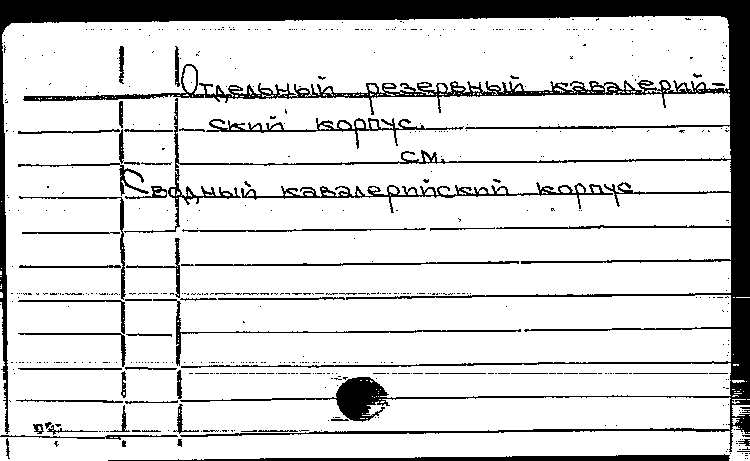 Отдельный резервный кавалерий-
ский корпус.
см.
Сводный кавалерийский корпус